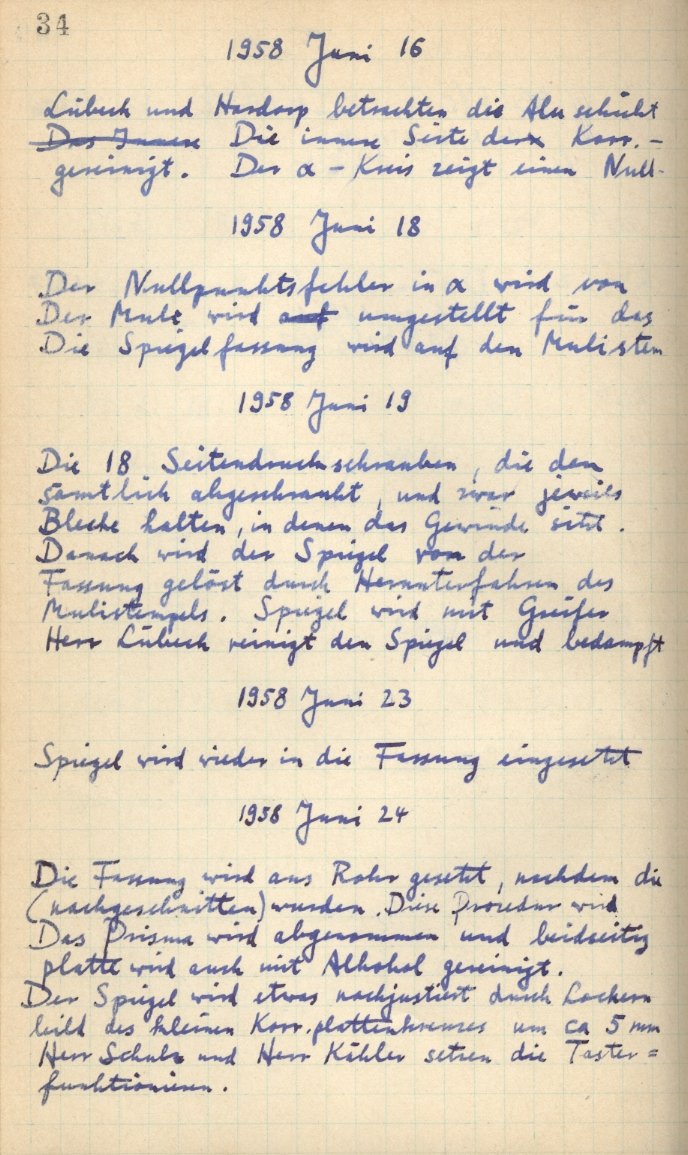 34
1958 Juni 16
Lübeck und Hardorp betrachten die Aluschicht
Das Innere Die innere Seite der Korr.-
gereinigt. Der α-Kreis zeigt einen Null-
1958 Juni 18
Der Nullpunktsfehler in α wird von
Der Muli wird auf umgestellt für das
Die Spiegelfassung wird auf den Mulistem
1958 Juni 19
Die 18 Seitendruckschrauben, die den
sämtlich abgeschraubt, und zwar jeweils
Bleche halten, in denen das Gewinde sitzt.
Danach wird der Spiegel von der
Fassung gelöst durch Herunterfahren des
Mulistempels. Spiegel wird mit Greifer
Herr Lübeck reinigt den Spiegel und bedampft
1958 Juni 23
Spiegel wird wieder in die Fassung eingesetzt
1958 Juni 24
Die Fassung wird ans Rohr gesetzt, nachdem die
(nachgeschnitten) wurden. Diese Prozedur wird
Das Prisma wird abgenommen und beidseitig
platte wird auch mit Alkohol gereinigt.
Der Spiegel wird etwas nachjustiert durch Lockern
bild des kleinen Korr.plattenkreuzes um ca 5 mm
Herr Schulz und Herr Kähler setzen die Taster=
funktionieren.